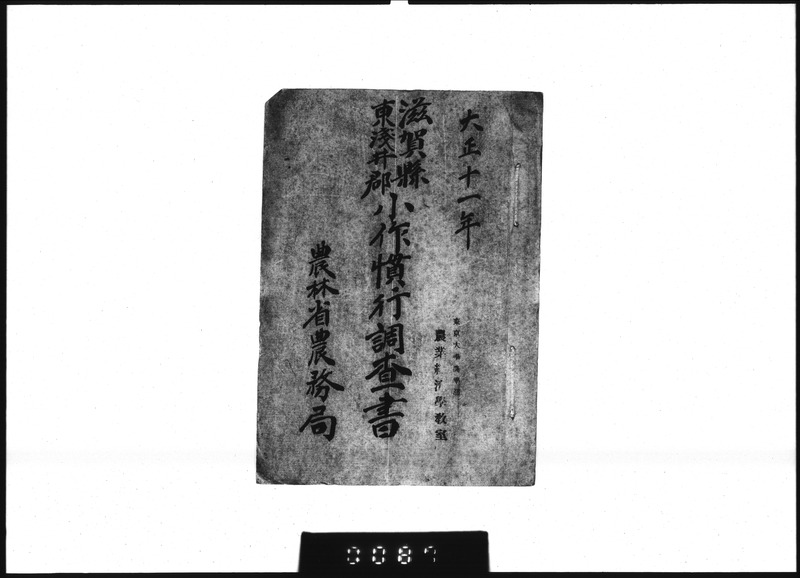 大正十一年
滋賀縣
東淺井郡
小作慣行調查書
東京大學
農業經濟學教室
農林省農務局
0087